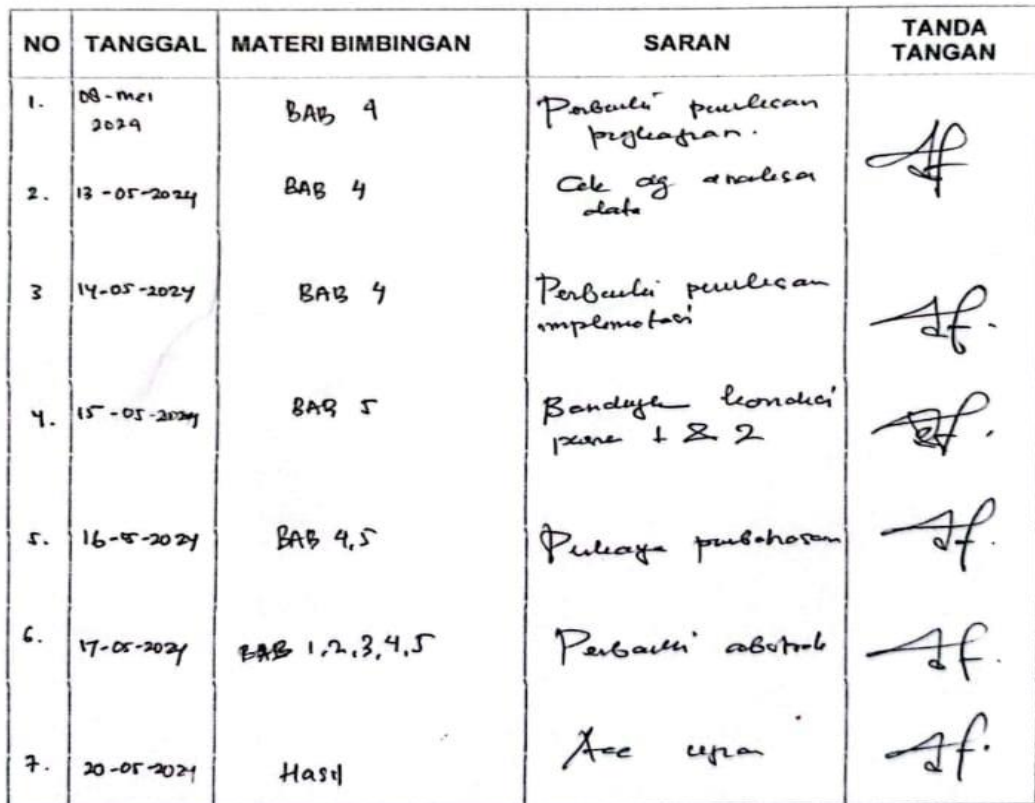 NO TANGGAL MATERI BIMBINGAN SARAN TANDA TANGAN
1. 08-mei 2024 BAB 4 Perbaiki penulisan pengkajian.
2. 13-05-2024 BAB 4 Cek dg analisa data
3 14-05-2024 BAB 4 Perbaiki penulisan implementasi
4. 15-05-2024 BAB 5 kondisi 1 & 2
5. 16-5-2024 BAB 4,5 Perkaya pembahasan
6. 17-05-2024 BAB 1,2,3,4,5 Perbaiki abstrak
7. 20-05-2024 Hasil Acc ujian